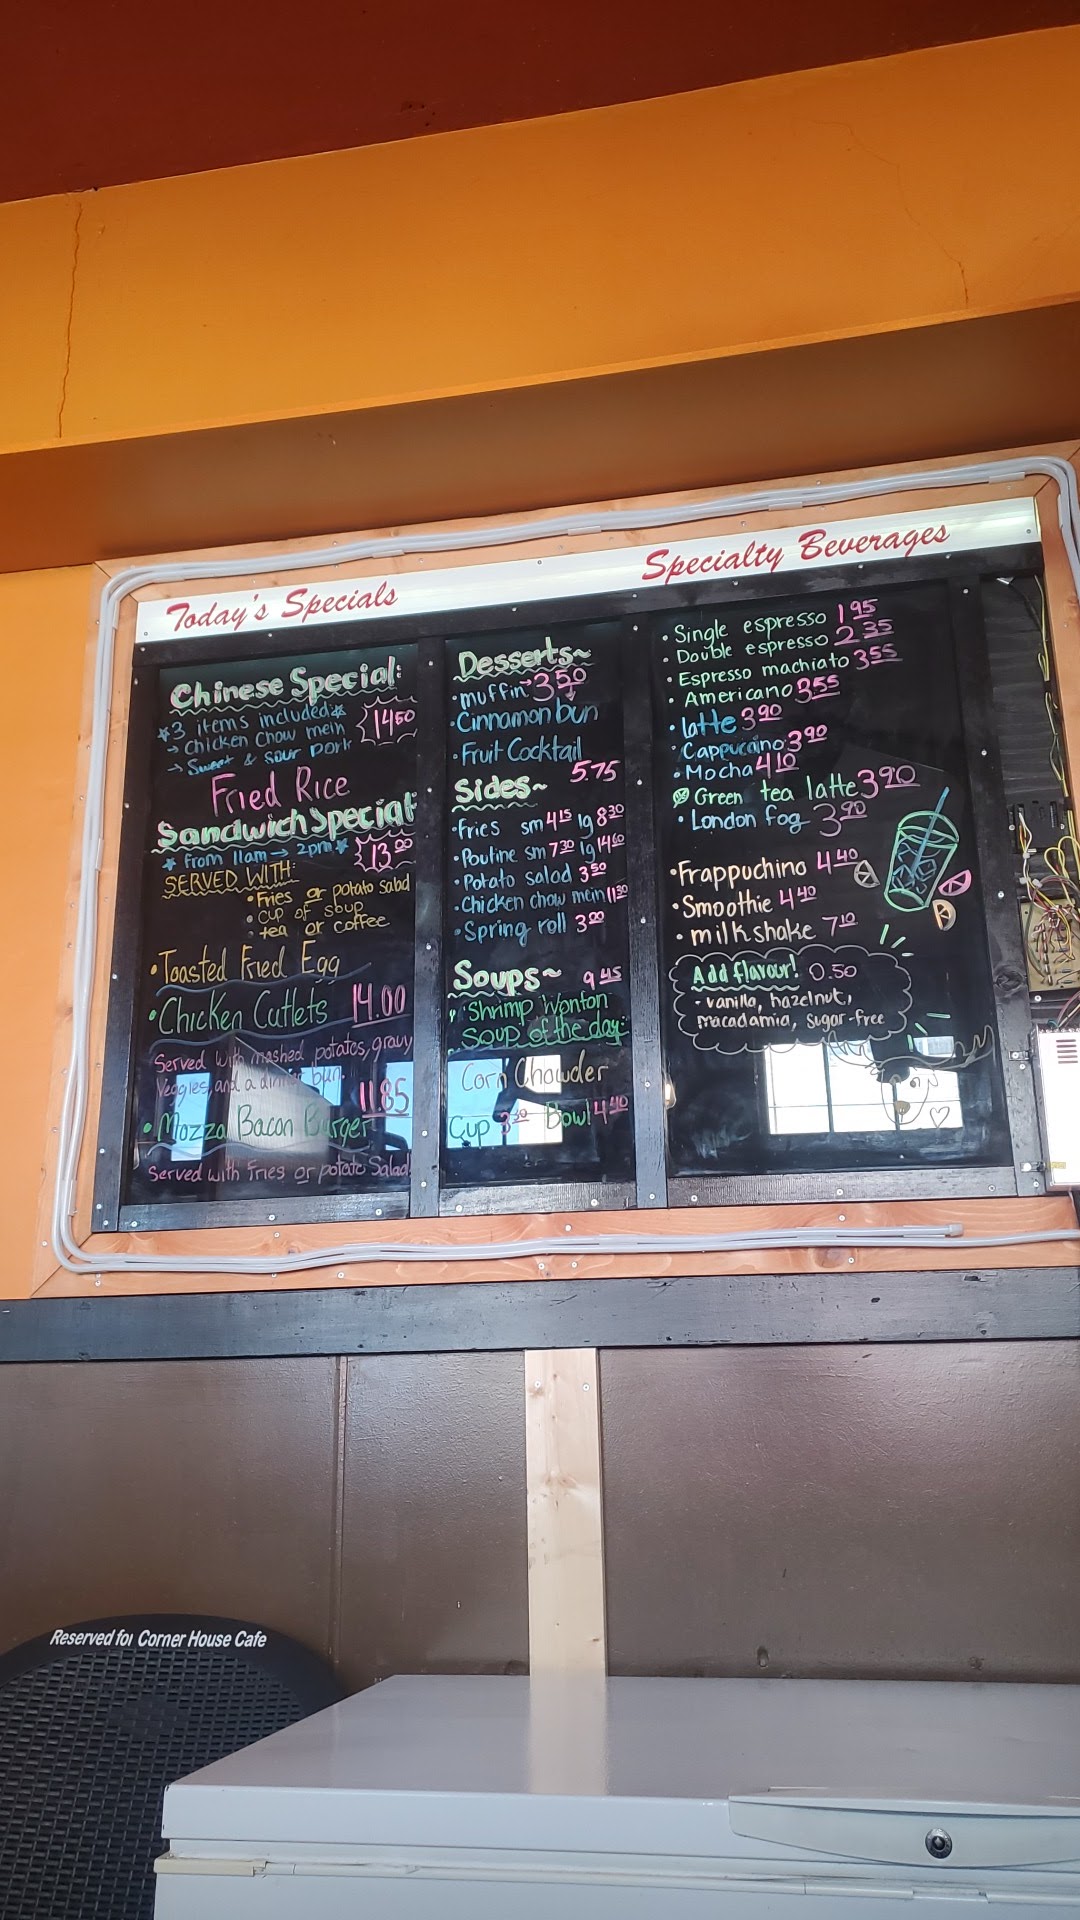 Today's Specials
Chinese Special:
3 items included
→ Chicken Chow mein
→ Sweet & sour pork
1450
Fried Rice
Sandwich Special
from 11am → 2pm
1300
SERVED WITH:
• Fries or potato salad
• cup of soup
• tea or coffee
• Toasted Fried Egg
• Chicken Cutlets 14.00
Served with mashed potatoes, gravy
Veggies, and a dinner bun.
1185
• Mozza Bacon Burger
Served with fries or potato Salad
Desserts~
• muffin → 350
• Cinnamon bun
• Fruit Cocktail
5.75
Sides~
• Fries sm 415 lg 830
• Poutine sm 730 lg 1460
• Potato salad 350
• Chicken chow mein 1130
• Spring roll 300
Soups~ 945
Shrimp Wonton
Soup of the day:
Corn Chowder
Cup 330 Bowl 440
Specialty Beverages
• Single espresso 195
• Double espresso 235
• Espresso machiato 355
• Americano 355
• latte 390
• Cappuccino 390
• Mocha 410
Green tea latte 390
• London fog 390
• Frappuchino 440
• Smoothie 440
• milkshake 710
Add flavour! 0.50
- vanilla, hazelnut,
macadamia, sugar-free
Reserved for Corner House Cafe